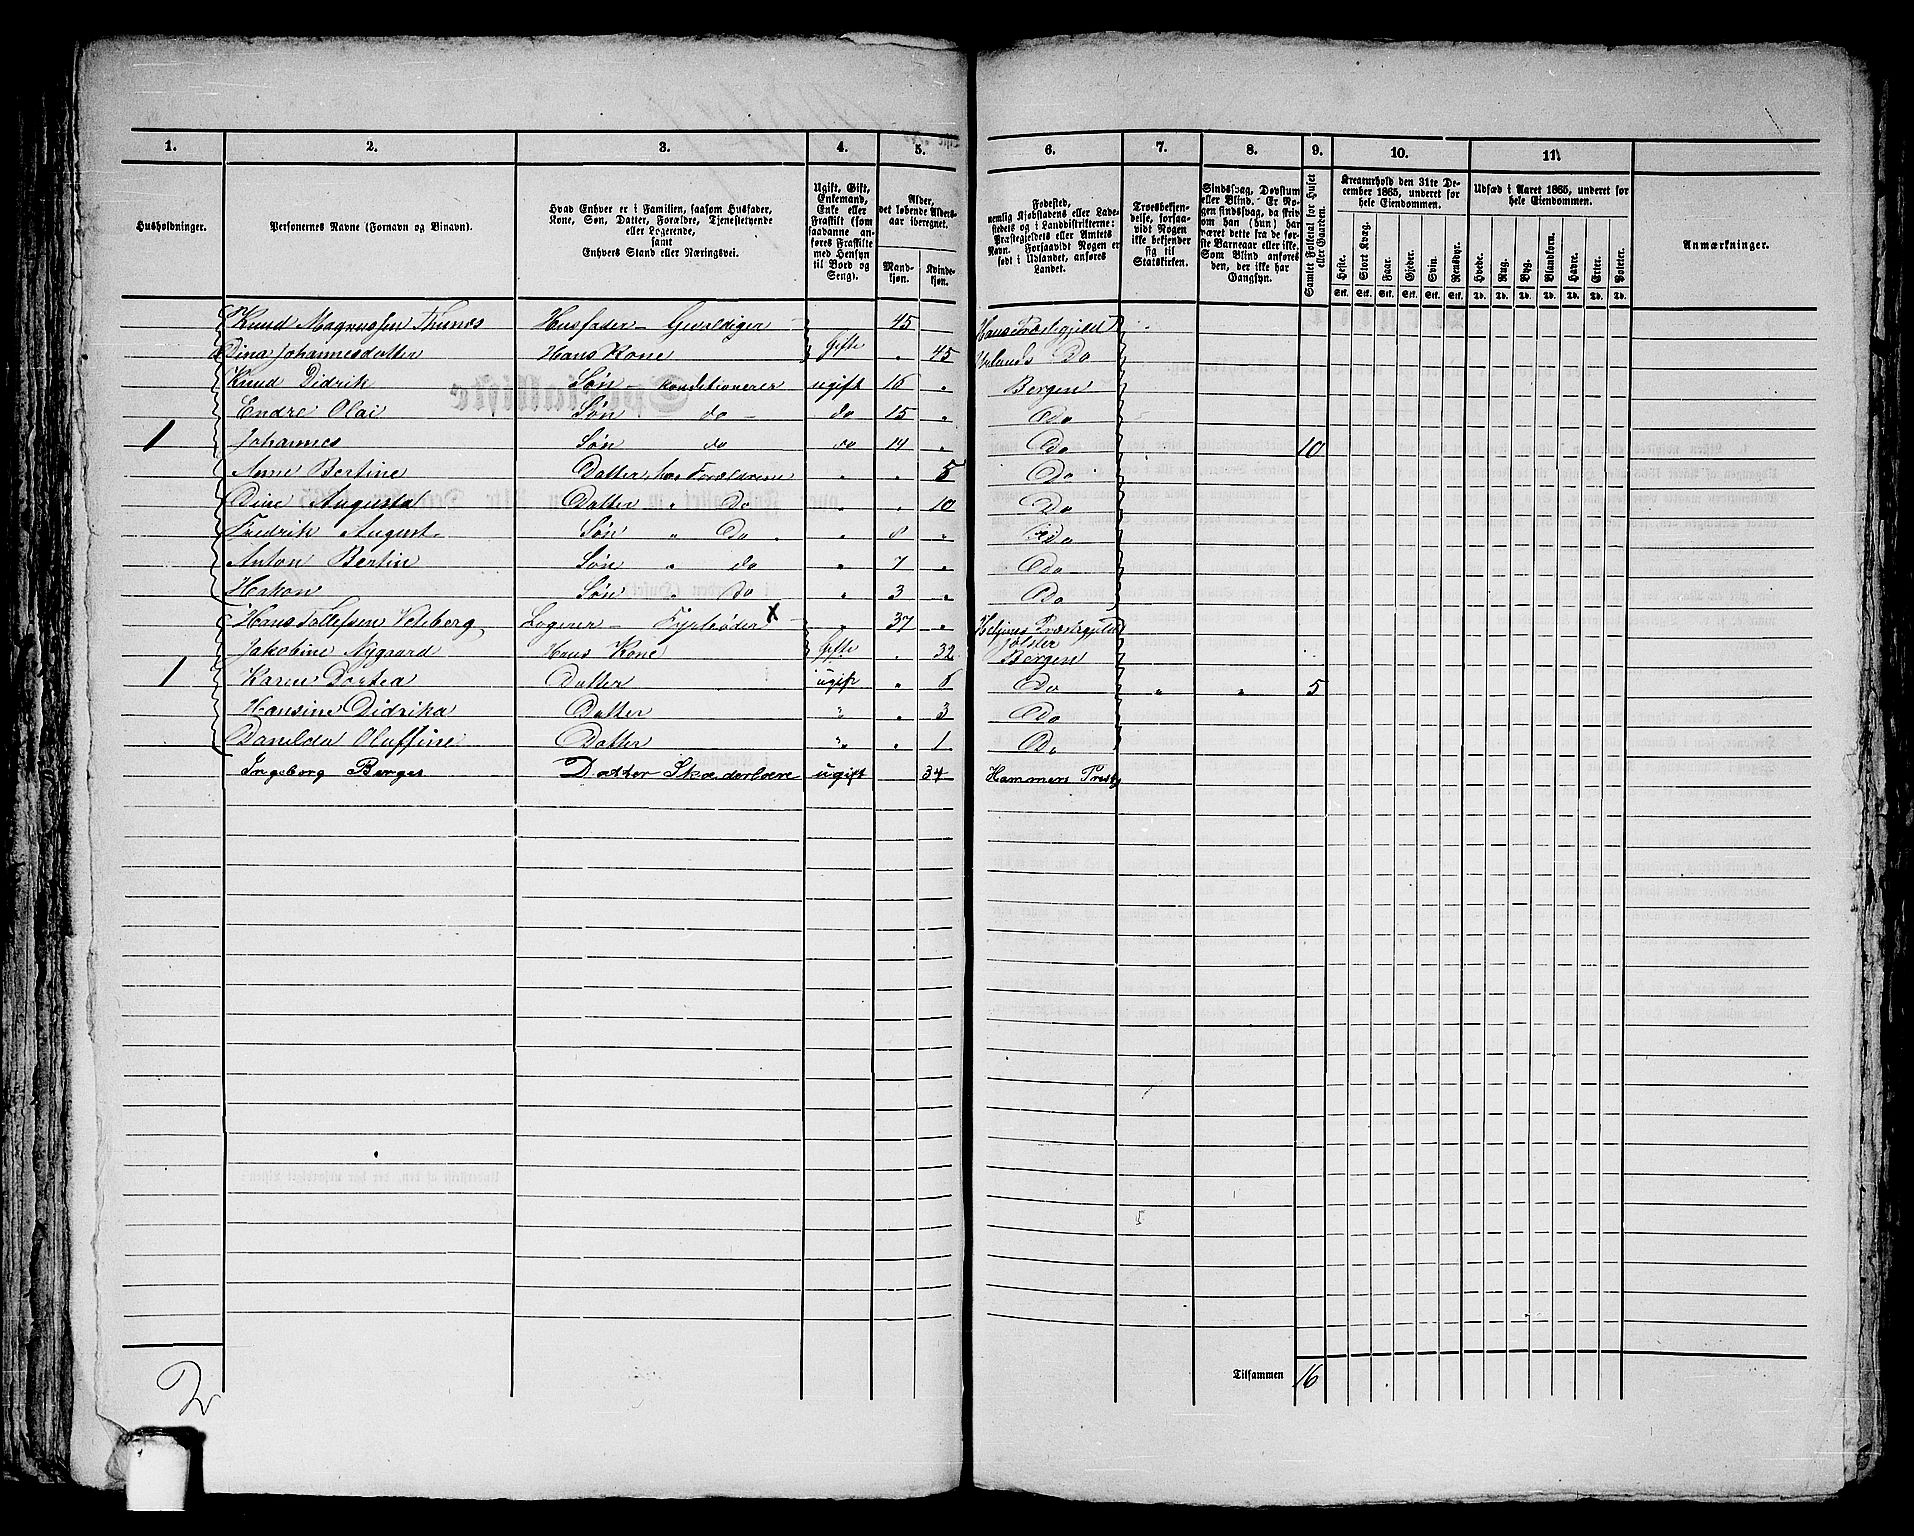 1. 2. 3. 4. 5. 6. 7. 8. 9. 10. 11.
Husholdninger.
Personernes Navne (Fornavn og Binavn).
Hvad Enhver er i Familien, saasom Husfader,
Kone, Søn, Datter, Forældre, Tjenestetyende
eller Logerende,
samt
Enhvers Stand eller Næringsvei.
Ugift, Gift,
Enkemand,
Enke eller
Fraskilt (som
saavanne an-
føres Fraskilte
med Hensyn
til Bord og
Seng).
Alder,
det løbende Alders-
aar iberegnet.
Mand-
kjøn.
Kvinde-
kjøn.
Fødested,
nemlig Kjøbstadens eller Lade-
stedets og i Landdistrikterne:
Præstegjeldets eller Amtets
Navn. Forsaavidt Nogen er
født i Udlandet, anføres
Landet.
Troesbekjen-
delse, forsaa-
vidt Nogen
ikke bekjender
sig til
Statskirken.
Sindssvag, Døvstum
eller Blind. Er No-
gen sindssvag, da skriv
om han (hun) har
været dette fra de før-
ste Barneaar eller ikke.
Som Blind anføres
den, der ikke har
Gangsyn.
Samlet Folketal for Huset
eller Gaarden.
Kreaturhold den 31te De-
cember 1865, underet for
hele Eiendommen.
Heste. Stort Kvæg. Faar. Gjeder. Svin. Rensdyr.
Stk. Stk. Stk. Stk. Stk. Stk.
Udsæd i Aaret 1865, underet for
hele Eiendommen.
Hvede. Rug. Byg. Blandkorn. Havre. Erter. Poteter.
Td. Td. Td. Td. Td. Td. Td.
Anmærkninger.
Knud Magnussen Thunes Husfader - Gevaldiger 45 Præstegjeld
Dina Johannesdatter Hans Kone Gifte " 45 Urlands Do
Knud Didrik Søn - konditionerer ugift 16 " Bergen
Endre Olai Søn do do 15 " Do
1 Johannes Søn do do 14 " Do 10
Anne Bertine Datter, hos Forældrene " " 5 Do
Dine Augusta Datter " Do " " 10 Do
Fredrik August Søn " Do " 8 " Do
Anton Bertin Søn " do " 7 " Do
Hakon Søn " Do " 3 " Do
Hans Tollefsen Veteberg Logerer - Fyrbøder x " 37 " Præstegjeld
Jakobine Nygaard Hans Kone Gifte " 32 Jølster
Bergen
1 Karen Dortea Datter ugift " 6 Do " " 5
Hansine Didrika Datter " " 3 Do
Danilda Oluffine Datter " " 1 Do
Ingeborg Berges Datter ugift 34 Hammers Præstg
Tilsammen 16
2